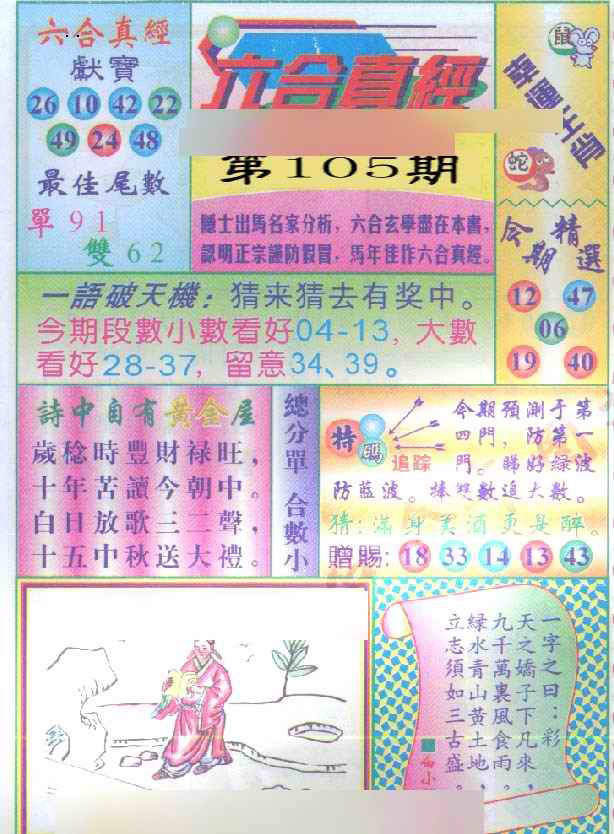 六合真經
獻寶
26 10 42 22
49 24 48
最佳尾數
單 91
雙 62
六合真經
第105期
隱士出馬名家分析，六合玄學盡在本書，
認明正宗謹防假冒，馬年佳作六合真經。
鼠
幸運生肖
蛇
今期精選
12 47
06
19 40
一語破天機：猜来猜去有奖中。
今期段數小數看好04-13，大數
看好28-37，留意34、39。
詩中自有黃金屋
歲稔時豐財禄旺，
十年苦讀今朝中。
白日放歌三二聲，
十五中秋送大禮。
總分單 合數小
特碼
追踪
今期預測于第
四門，防第一
門。睇好緑波
防藍波。捧雙數追大數。
猜：滿身美酒更是醉。
贈賜：18 33 14 13 43
一字之曰：彩
天之嬌子下凡來，
九千萬裏風食雨，
緑水青山黃土地，
立志須如三古盛。